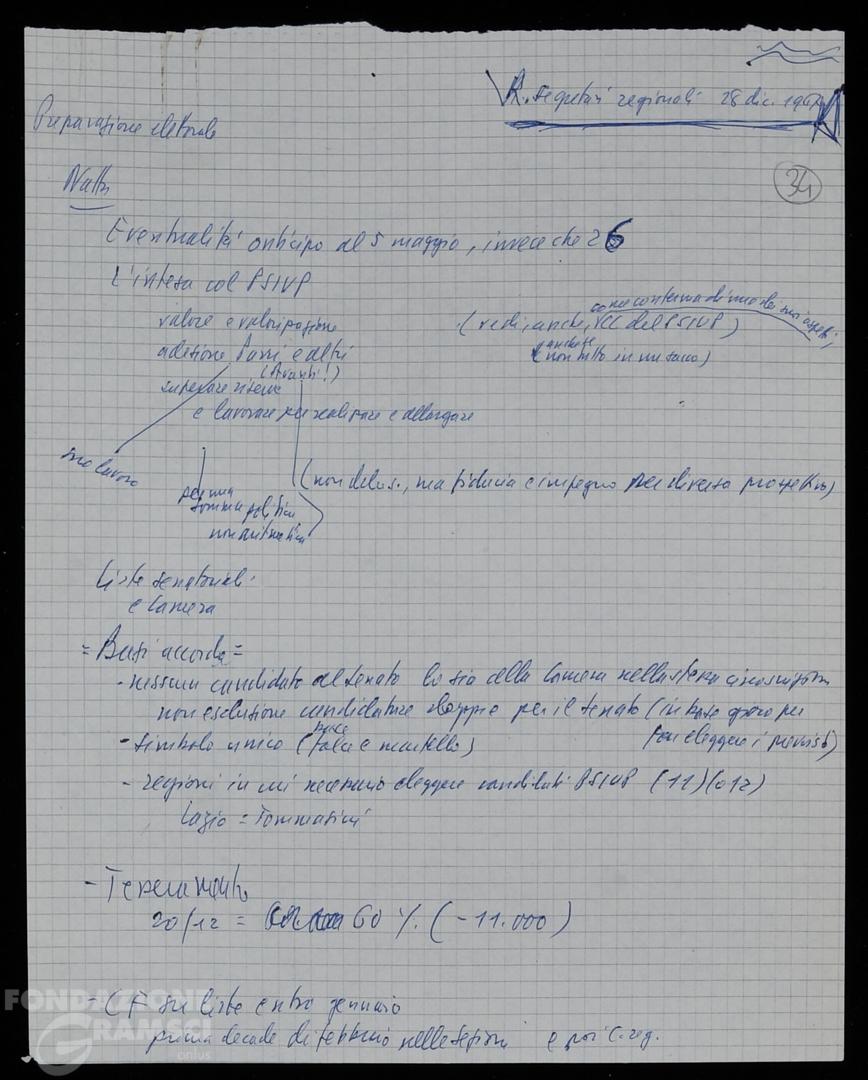 R. segretari regionali 28 dic. 1967
Preparazione elettorale
34
Natta
Eventualità anticipo al 5 maggio, invece che 26
L'intesa col PSIUP
come conferma di uno dei suoi aspetti,
valore e valorizzazione (vedi, anche, CC del PSIUP)
adesione Parri e altri (non tutto in un sacco)
(Avanti!)
superare riserve
e lavorare per realizzare e allargare
suo lavoro
(non delus., ma fiducia e impegno per diversa prospettiva)
per una
somma politica
non aritmetica
Liste senatoriali
e Camera
= Basi accordo =
- nessun candidato al Senato lo sia della Camera nella stessa circoscrizione
non esclusione candidature doppie per il Senato (in base per
far eleggere i previsti)
- simbolo unico (falce e martello)
- regioni in cui necessario eleggere candidati PSIUP (11) (o 12)
Lazio = Tommasini
- Tesseramento
20/12 = 60 % (- 11.000)
- CF su liste entro gennaio
prima decade di febbraio nelle sezioni e poi C. reg.
FONDAZIONE
GRAMSCI
onlus